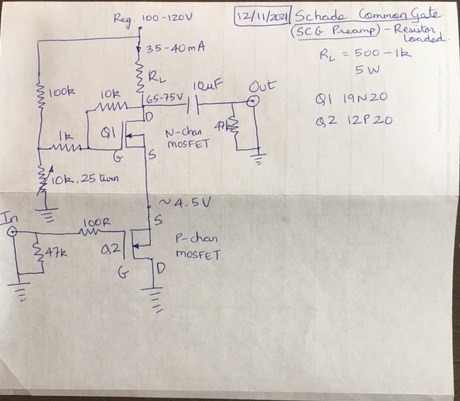 Reg 100-120V
12/11/2021 Schade Common Gate
(SCG Preamp) - Resistor
loaded.
35-40mA
RL = 500-1k
5W
RL
100k
10k
65-75V
10uF
Out
Q1 19N20
Q2 12P20
D
1k
Q1
47k
N-chan
MOSFET
G
S
10k, 25 turn
~4.5V
In
S
100R
P-chan
MOSFET
47k
Q2
G
D